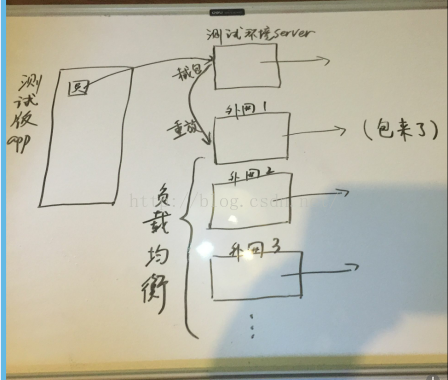 测试环境server
测试版app
截包
重放
外网1
(包来了)
外网2
http://blog.csdn.ne
外网3
负载均衡